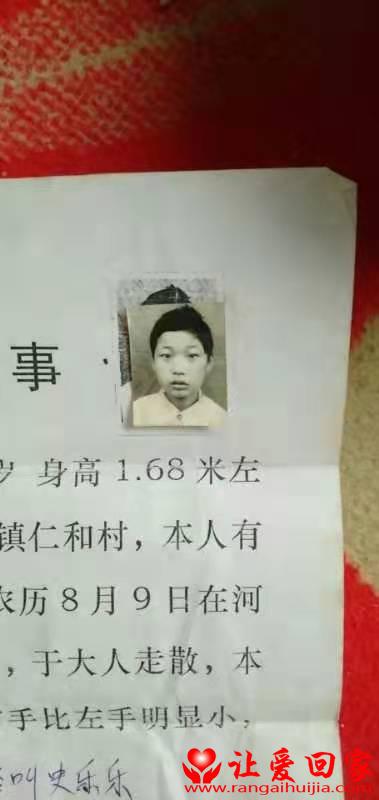 事
岁 身高1.68米左
镇仁和村，本人有
农历8月9日在河
，于大人走散，本
手比左手明显小，
叫史乐乐
让爱回家
www.rangaihuijia.com